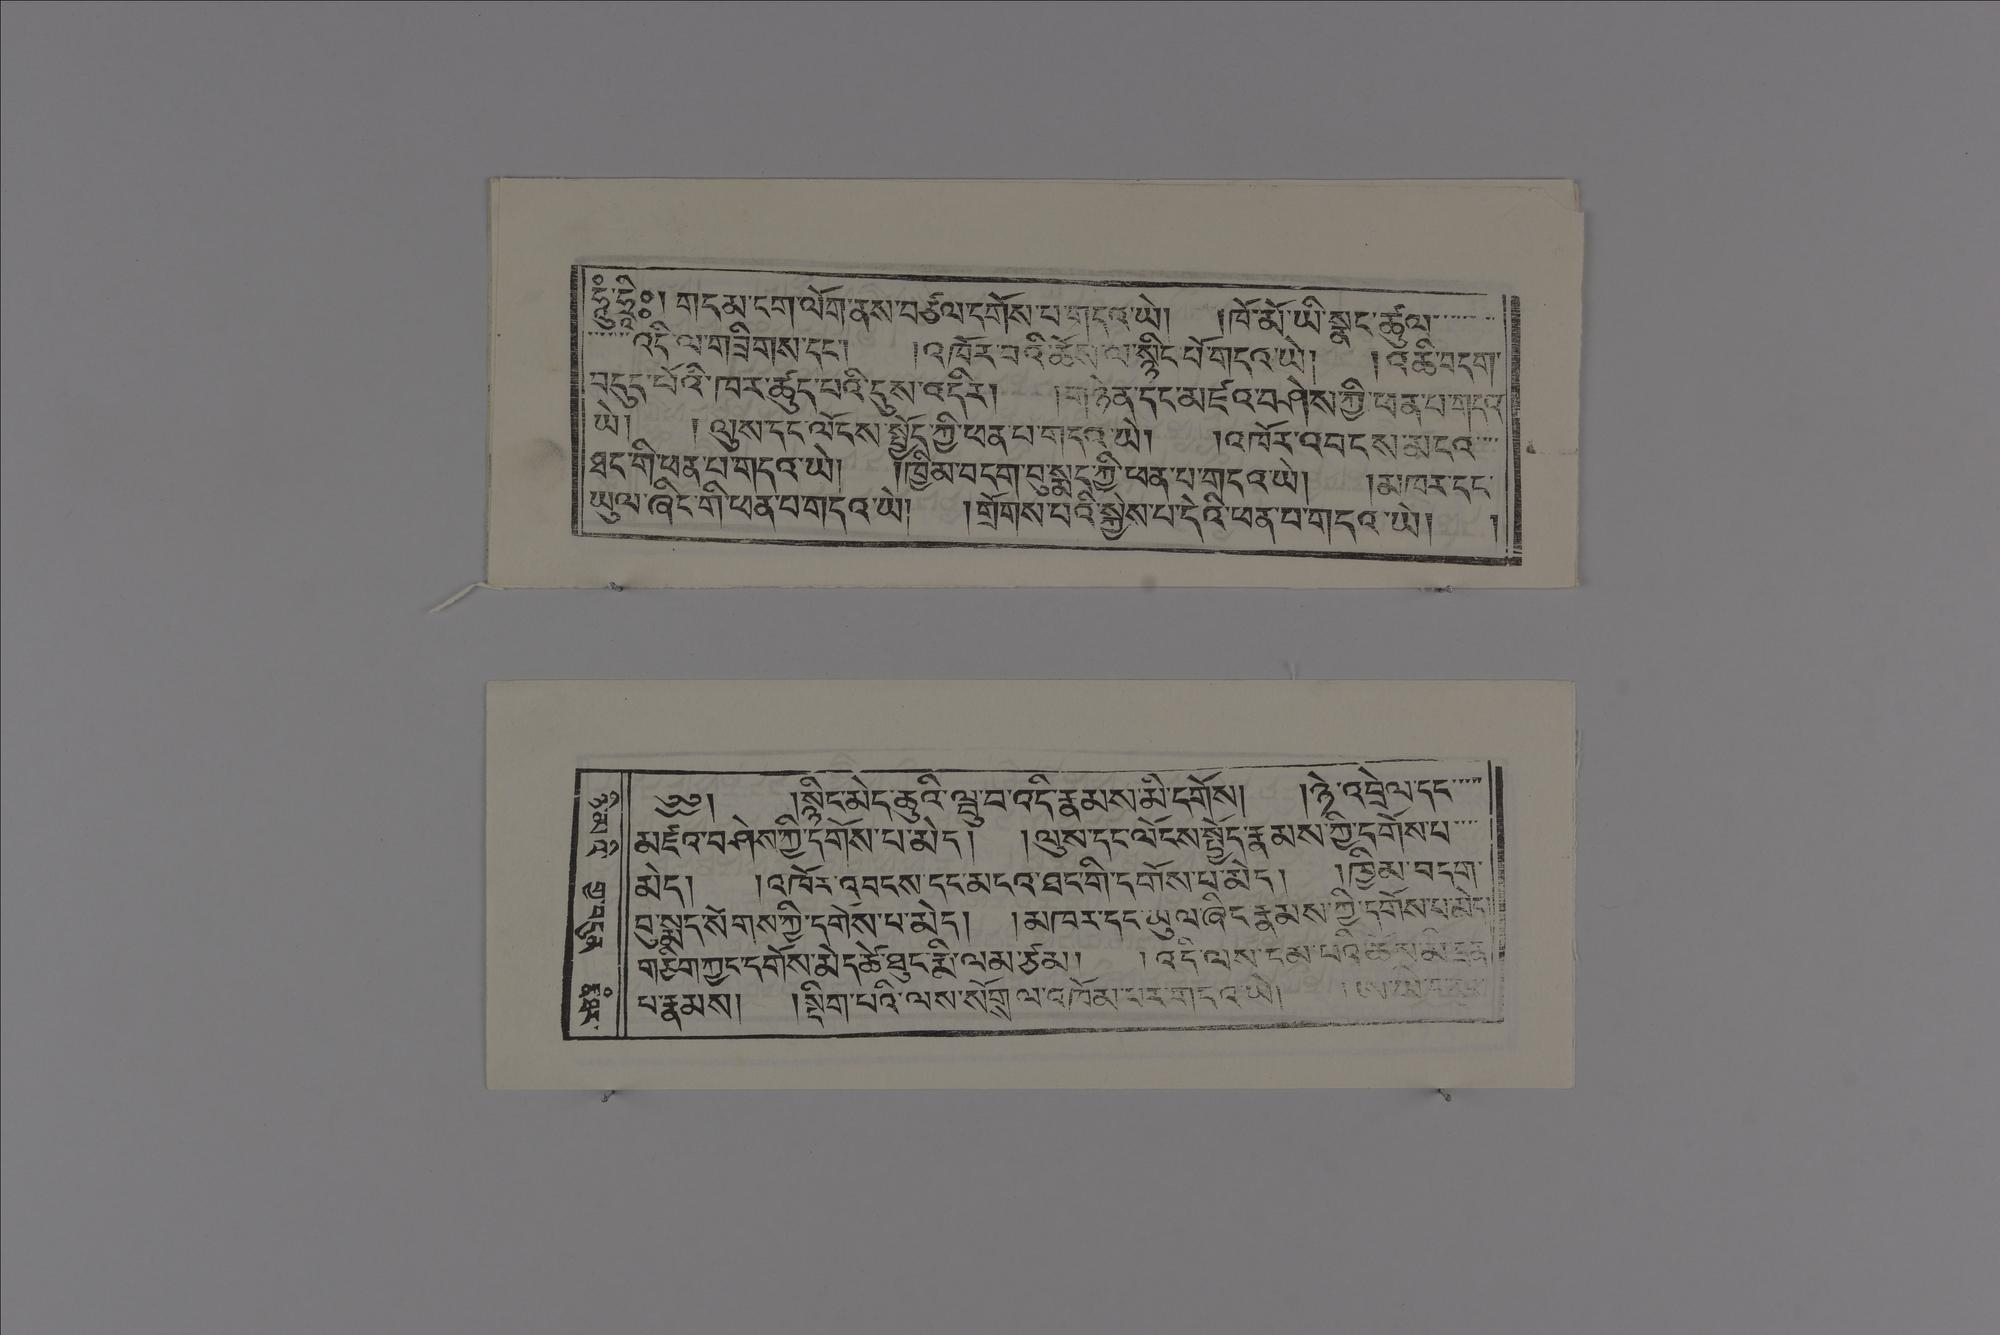 ཧཱུྃ་ཧྲཱིཿ གདམ་ངག་ལོག་ནས་བཙལ་དགོས་པ་གདའ་ཡེ། །ཁོ་མོ་ཡི་སྣང་ཚུལ་
འདི་ལ་གཟིགས་དང་། །འཁོར་བའི་ཆོས་ལ་སྙིང་པོ་གདའ་ཡེ། །འཆི་བདག་
བདུད་པོའི་ཁར་ཚུད་པའི་དུས་འདིར། །གཉེན་དང་མཛའ་བཤེས་ཀྱི་ཕན་པ་གདའ་
ཡེ། །ལུས་དང་ལོངས་སྤྱོད་ཀྱི་ཕན་པ་གདའ་ཡེ། །འཁོར་འབངས་མངའ་
ཐང་གི་ཕན་པ་གདའ་ཡེ། །ཁྱིམ་བདག་བུ་སྨད་ཀྱི་ཕན་པ་གདའ་ཡེ། །མཁར་དང་
ཡུལ་ཞིང་གི་ཕན་པ་གདའ་ཡེ། །གྲོགས་པའི་སྐྱེས་པ་དེའི་ཕན་པ་གདའ་ཡེ། །
༄༅། །སྙིང་མེད་ཆུའི་ལྦུ་བ་འདི་རྣམས་མི་དགོས། །ཉེ་འབྲེལ་དང་
མཛའ་བཤེས་ཀྱི་དགོས་པ་མེད། །ལུས་དང་ལོངས་སྤྱོད་རྣམས་ཀྱི་དགོས་པ་
མེད། །འཁོར་འབངས་དང་མངའ་ཐང་གི་དགོས་པ་མེད། །ཁྱིམ་བདག་
བུ་སྨད་སོགས་ཀྱི་དགོས་པ་མེད། །མཁར་དང་ཡུལ་ཞིང་རྣམས་ཀྱི་དགོས་པ་མེད།
གཅིག་ཀྱང་དགོས་མེད་ཚེ་ཐུང་རྨི་ལམ་ཙམ། །འདི་ལས་དམ་པའི་ཆོས་མི་དྲན་
པ་རྣམས། །སྡིག་པའི་ལས་སོགྲོལ་འཁོམ་པར་གདའ་ཡེ།